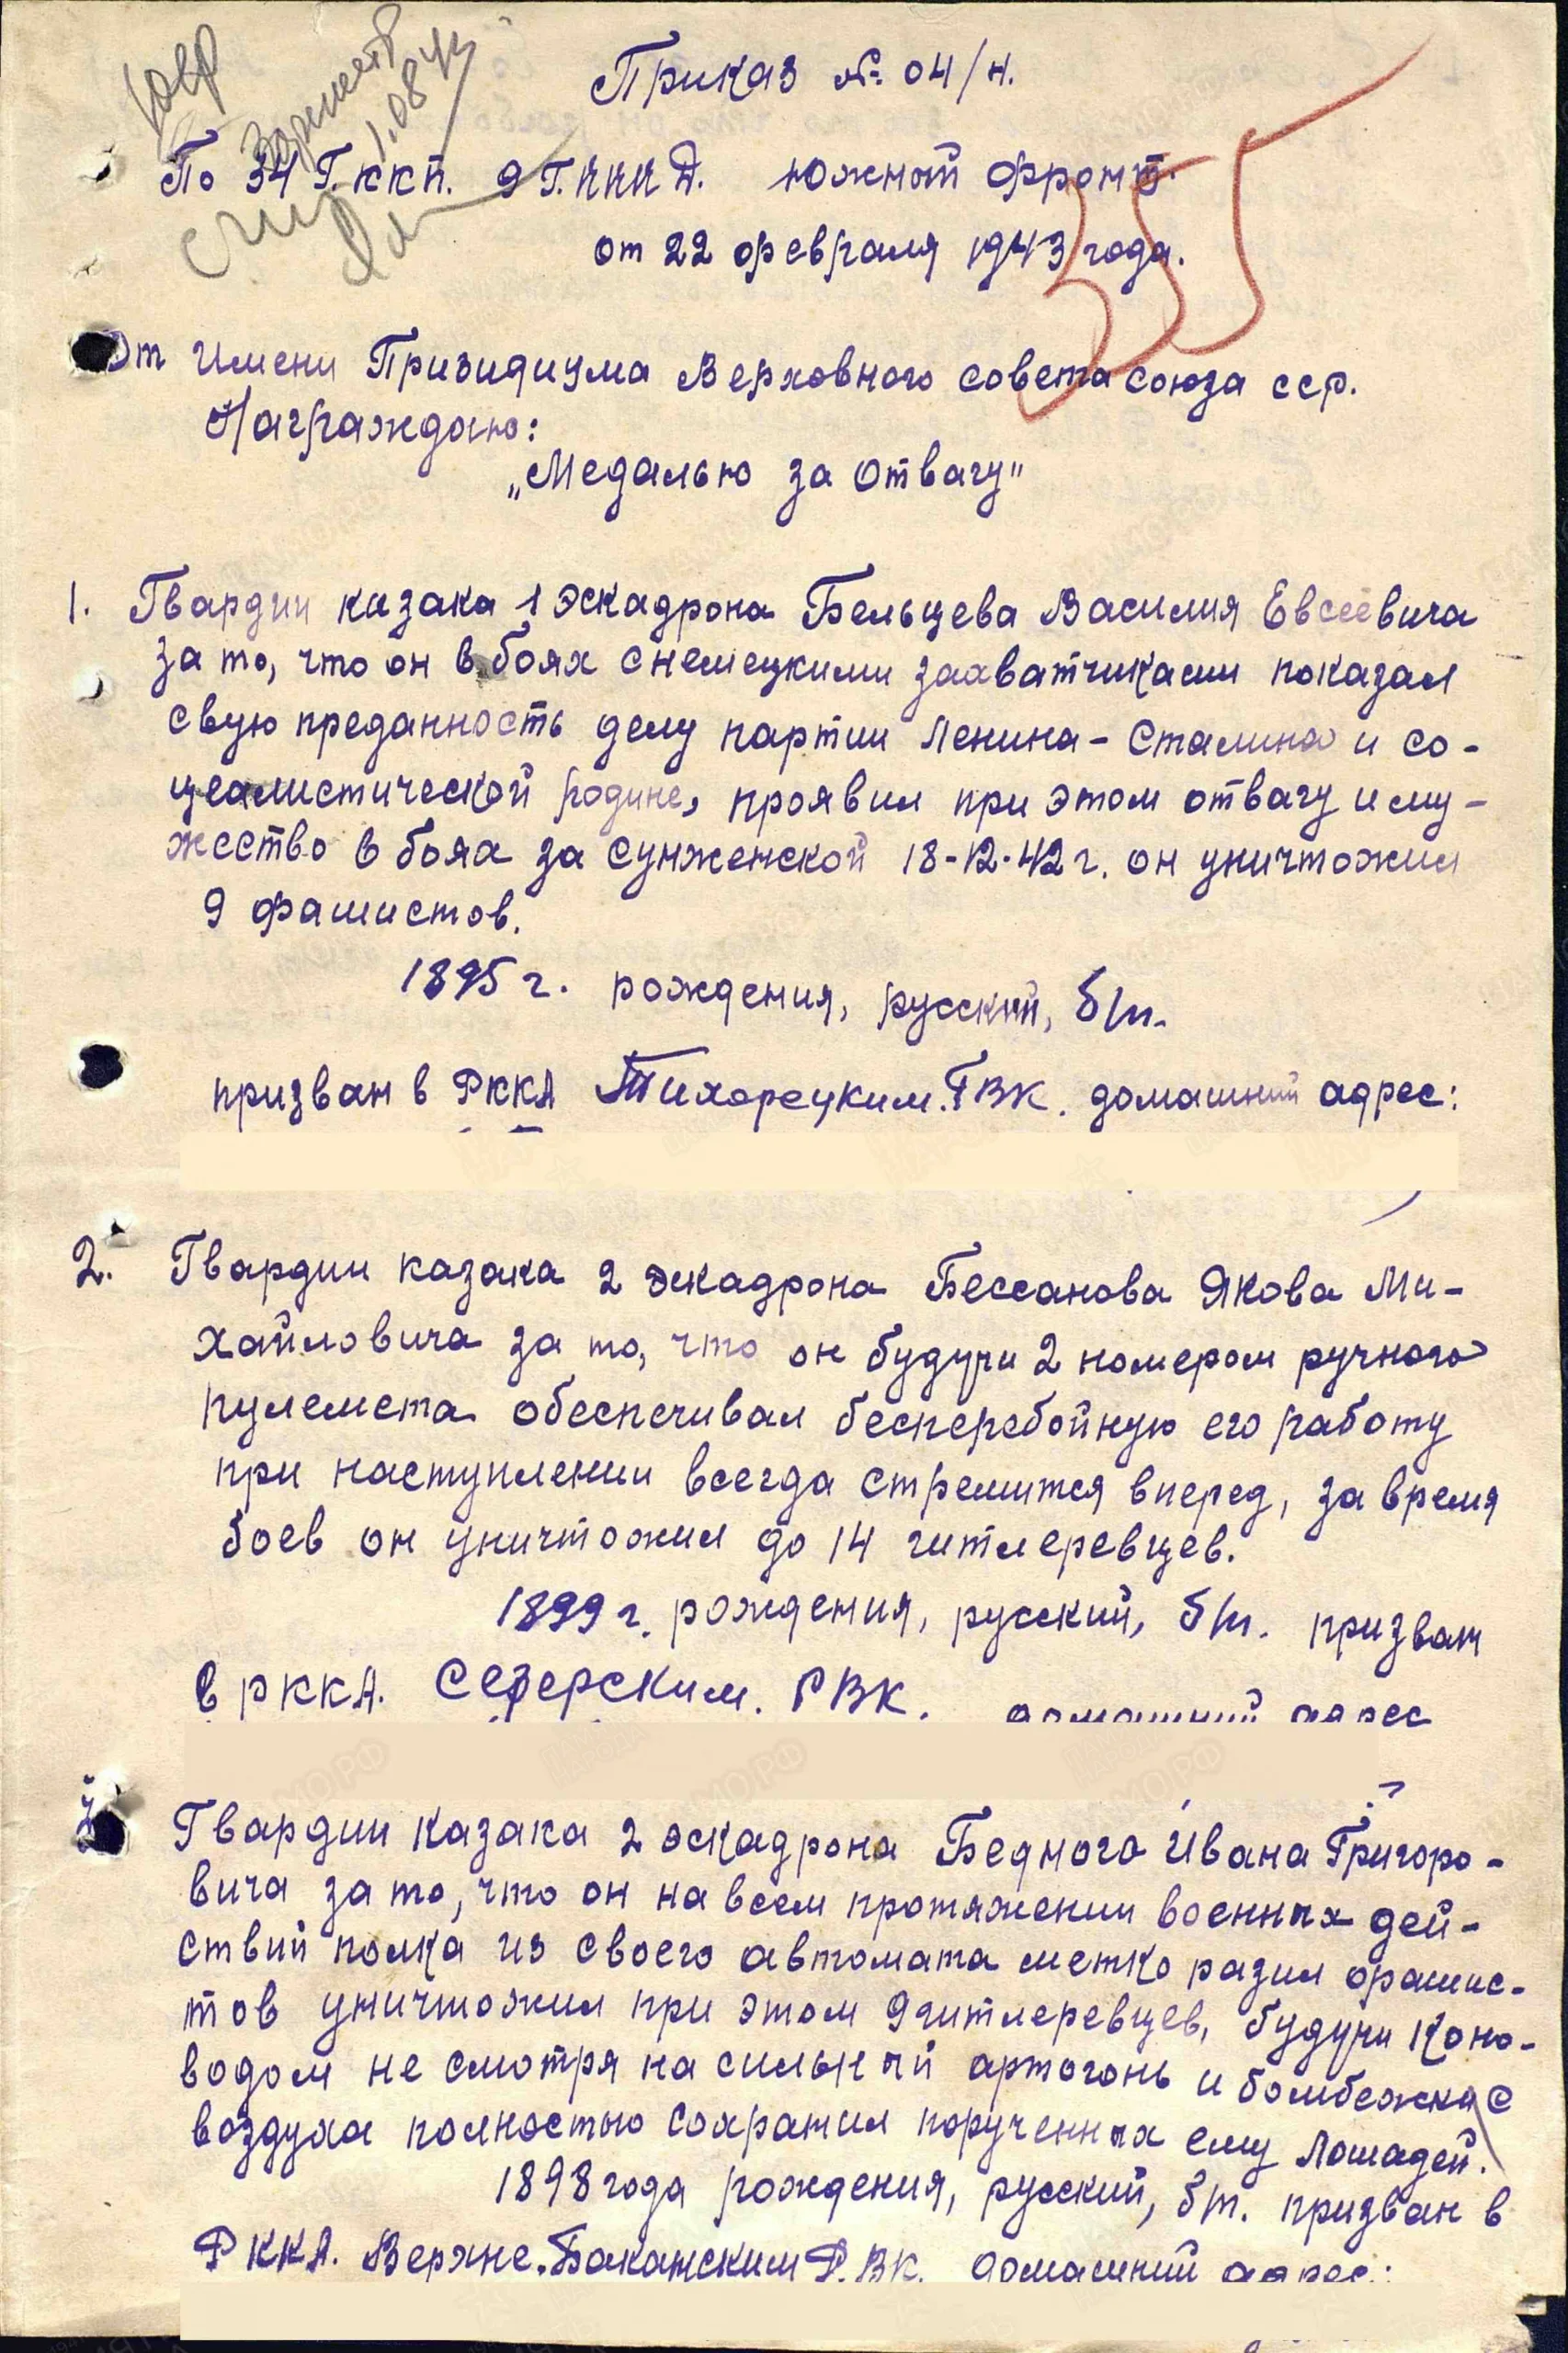 Приказ № 04/н.
По 34 Г. ккп. 9 Г.ККК Д. Южный фронт.
от 22 февраля 1943 года.
355
От имени Призидиума Верховного совета союза сср.
Награждаю:
„Медалью за Отвагу"
1. Гвардии казака 1 эскадрона Бельцева Василия Евсеевича
за то, что он в боях с немецкими захватчиками показал
свую преданность делу партии Ленина-Сталина и со-
цеалистической родине, проявил при этом отвагу и му-
жество в боях за Сунженской 18-12-42 г. он уничтожил
9 фашистов.
1895 г. рождения, русский, б/п.
призван в РККА Тихорецким. ГВК. домашний адрес:
2. Гвардии казака 2 эскадрона Бессанова Якова Ми-
хайловича за то, что он будучи 2 номером ручного
пулемета обеспечивал бесперебойную его работу
при наступлении всегда стремится вперед, за время
боев он уничтожил до 14 гитлеревцев.
1899 г. рождения, русский, б/п. призван
в РККА. Северским. РВК. домашний адрес
3. Гвардии казака 2 эскадрона Бедного Ивана Григоро-
вича за то, что он на всем протяжении военных дей-
ствий полка из своего автомата метко разил фашис-
тов уничтожил при этом 9 гитлеревцев, будучи коно-
водом не смотря на сильный артогонь и бомбежка с
воздуха полностью сохранил порученных ему лошадей.
1898 года рождения, русский, б/п. призван в
РККА. Верхне.Баканским Р.ВК. домашний адрес: